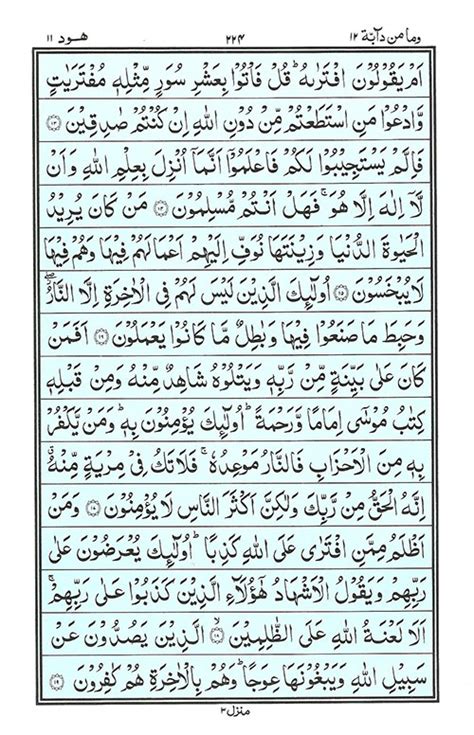 وما من دآبة ١٢ ٢٢٤ هود ١١
اَمْ يَقُوْلُوْنَ افْتَرٰىهُ ؕ قُلْ فَاْتُوْا بِعَشْرِ سُوَرٍ مِّثْلِهٖ مُفْتَرَيٰتٍ
وَّادْعُوْا مَنِ اسْتَطَعْتُمْ مِّنْ دُوْنِ اللّٰهِ اِنْ كُنْتُمْ صٰدِقِيْنَ ۝۱۳
فَاِلَّمْ يَسْتَجِيْبُوْا لَكُمْ فَاعْلَمُوْۤا اَنَّمَاۤ اُنْزِلَ بِعِلْمِ اللّٰهِ وَاَنْ
لَّاۤ اِلٰهَ اِلَّا هُوَ ۚ فَهَلْ اَنْتُمْ مُّسْلِمُوْنَ ۝۱۴ مَنْ كَانَ يُرِيْدُ
الْحَيٰوةَ الدُّنْيَا وَزِيْنَتَهَا نُوَفِّ اِلَيْهِمْ اَعْمَالَهُمْ فِيْهَا وَهُمْ فِيْهَا
لَا يُبْخَسُوْنَ ۝۱۵ اُولٰٓئِكَ الَّذِيْنَ لَيْسَ لَهُمْ فِى الْاٰخِرَةِ اِلَّا النَّارُ ۖ
وَحَبِطَ مَا صَنَعُوْا فِيْهَا وَبٰطِلٌ مَّا كَانُوْا يَعْمَلُوْنَ ۝۱۶ اَفَمَنْ
كَانَ عَلٰى بَيِّنَةٍ مِّنْ رَّبِّهٖ وَيَتْلُوْهُ شَاهِدٌ مِّنْهُ وَمِنْ قَبْلِهٖ
كِتٰبُ مُوْسٰۤى اِمَامًا وَّرَحْمَةً ؕ اُولٰٓئِكَ يُؤْمِنُوْنَ بِهٖ ؕ وَمَنْ يَّكْفُرْ
بِهٖ مِنَ الْاَحْزَابِ فَالنَّارُ مَوْعِدُهٗ ۚ فَلَا تَكُ فِىْ مِرْيَةٍ مِّنْهُ ۗ
اِنَّهُ الْحَقُّ مِنْ رَّبِّكَ وَلٰكِنَّ اَكْثَرَ النَّاسِ لَا يُؤْمِنُوْنَ ۝۱۷ وَمَنْ
اَظْلَمُ مِمَّنِ افْتَرٰى عَلَى اللّٰهِ كَذِبًا ؕ اُولٰٓئِكَ يُعْرَضُوْنَ عَلٰى
رَبِّهِمْ وَيَقُوْلُ الْاَشْهَادُ هٰۤؤُلَآءِ الَّذِيْنَ كَذَبُوْا عَلٰى رَبِّهِمْ ۚ
اَلَا لَعْنَةُ اللّٰهِ عَلَى الظّٰلِمِيْنَ ۙ۝۱۸ الَّذِيْنَ يَصُدُّوْنَ عَنْ
سَبِيْلِ اللّٰهِ وَيَبْغُوْنَهَا عِوَجًا ؕ وَهُمْ بِالْاٰخِرَةِ هُمْ كٰفِرُوْنَ ۝۱۹
منزل ٣